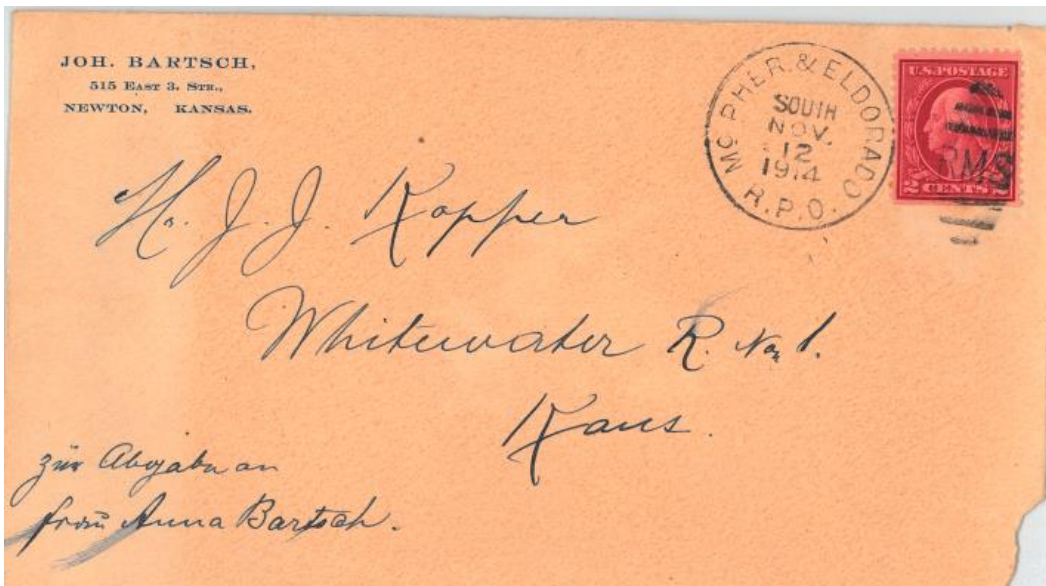 JOH. BARTSCH,
515 EAST 3. STR.,
NEWTON, KANSAS.
MC PHER. & ELDORADO
SOUTH
NOV.
12
1914
R.P.O.
U.S. POSTAGE
RMS
2 CENTS 2
H. J. J. Kopper
Whitewater R. No. 1.
Kans.
zur Abgabe an
frau Anna Bartsch.